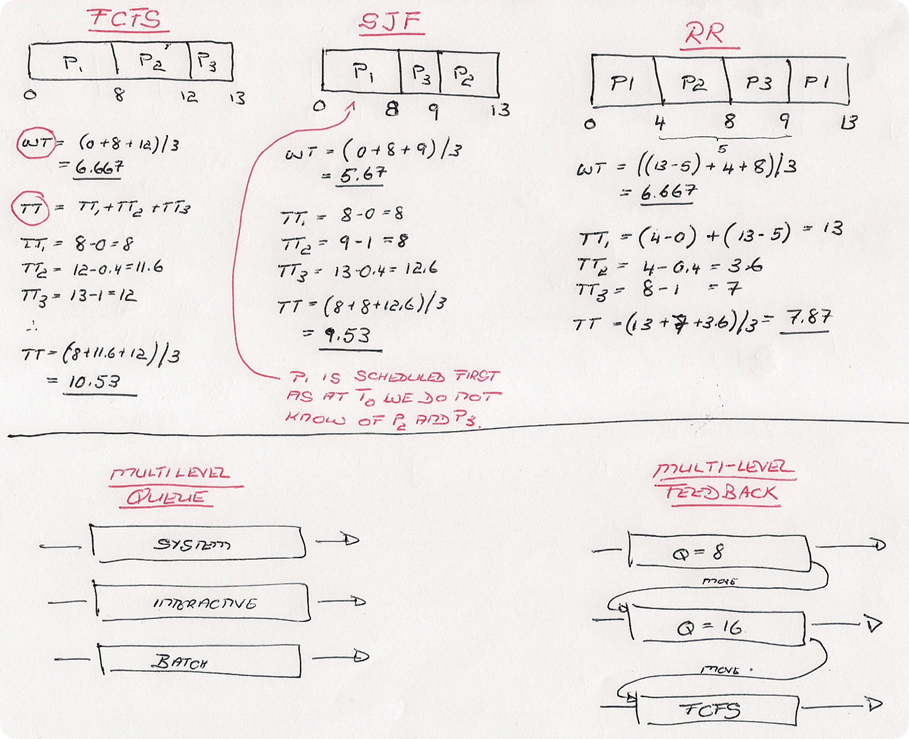 FCFS
P1 P2 P3
0 8 12 13
WT = (0+8+12)/3
= 6.667
TT = TT1+TT2+TT3
TT1 = 8-0=8
TT2 = 12-0.4=11.6
TT3 = 13-1=12
∴
TT=(8+11.6+12)/3
= 10.53
SJF
P1 P3 P2
0 8 9 13
WT = (0+8+9)/3
= 5.67
TT1 = 8-0=8
TT2 = 9-1=8
TT3 = 13-0.4=12.6
TT=(8+8+12.6)/3
= 9.53
P1 IS SCHEDULED FIRST
AS AT T0 WE DO NOT
KNOW OF P2 AND P3.
RR
P1 P2 P3 P1
0 4 8 9 13
5
WT = ((13-5)+4+8)/3
= 6.667
TT1 = (4-0)+(13-5) = 13
TT2 = 4-0.4=3.6
TT3 = 8-1 = 7
TT=(13+7+3.6)/3= 7.87
MULTILEVEL
QUEUE
SYSTEM
INTERACTIVE
BATCH
MULTI-LEVEL
FEEDBACK
Q = 8
MOVE
Q = 16
MOVE.
FCFS